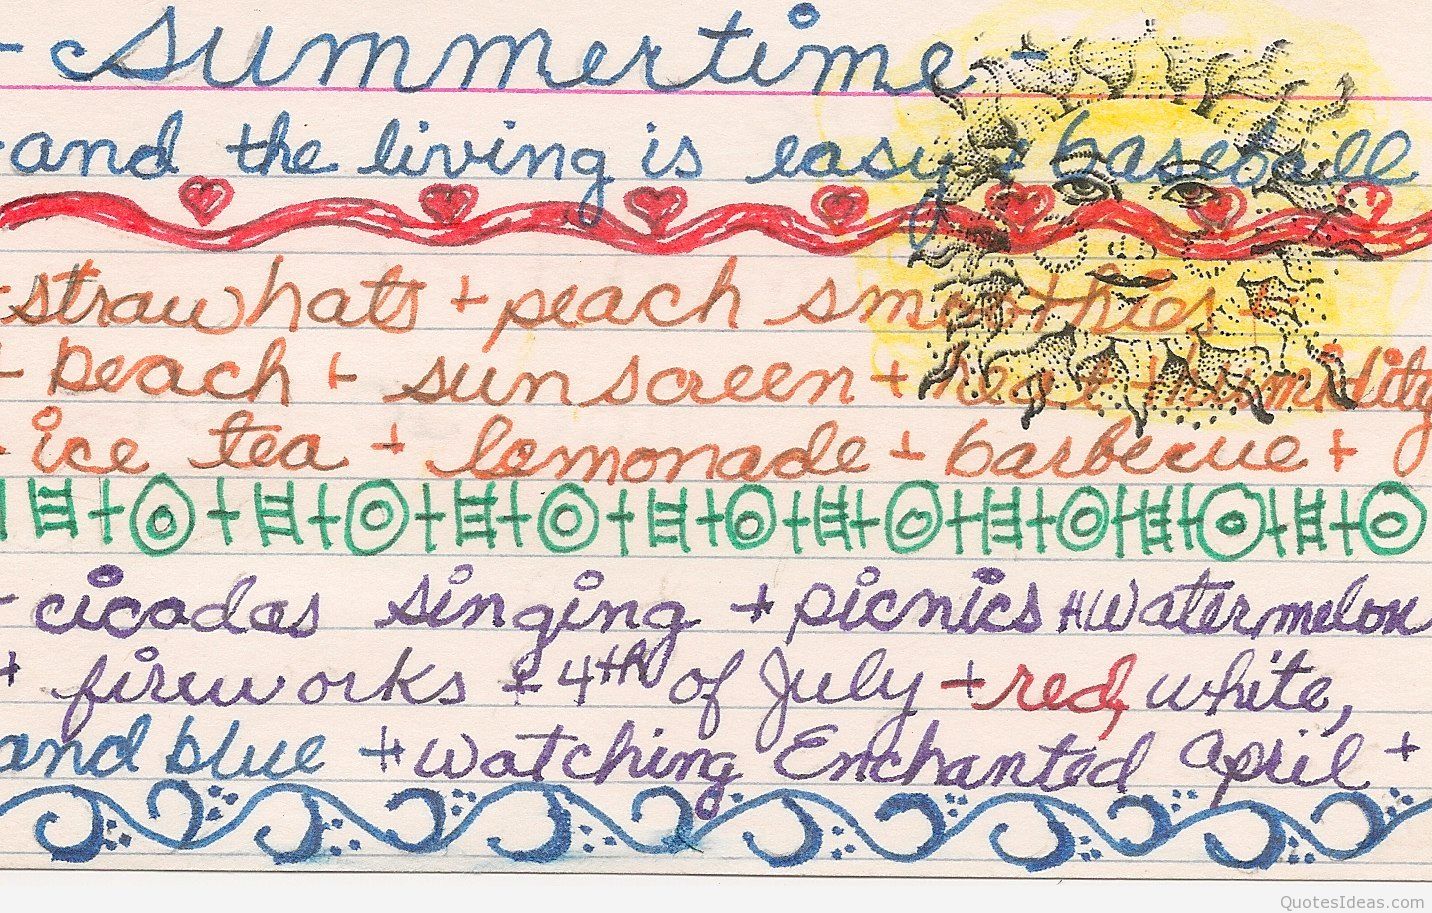 - Summertime -
- and the living is easy + baseball
- straw hats + peach smoothies +
+ beach + sunscreen + heat + humidity
- ice tea + lemonade + barbecue +
- cicadas singing + picnics + watermelon
+ fireworks + 4th of July + red, white,
and blue + watching Enchanted April +
QuotesIdeas.com